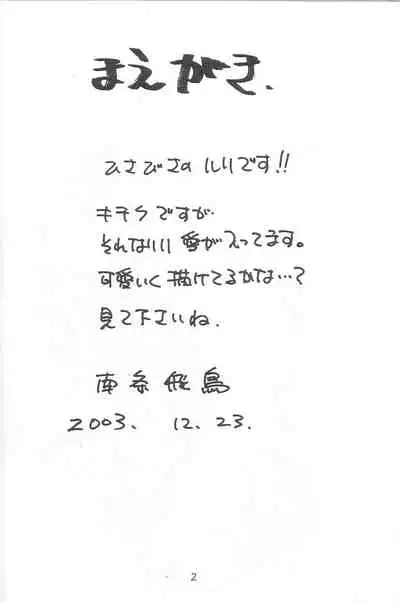 まえがき.
ひさびさのルリです!!
キチクですが.
それなりに愛が入ってます。
可愛いく描けてるかな…?
見て下さいね.
南条飛鳥
2003. 12. 23.
2